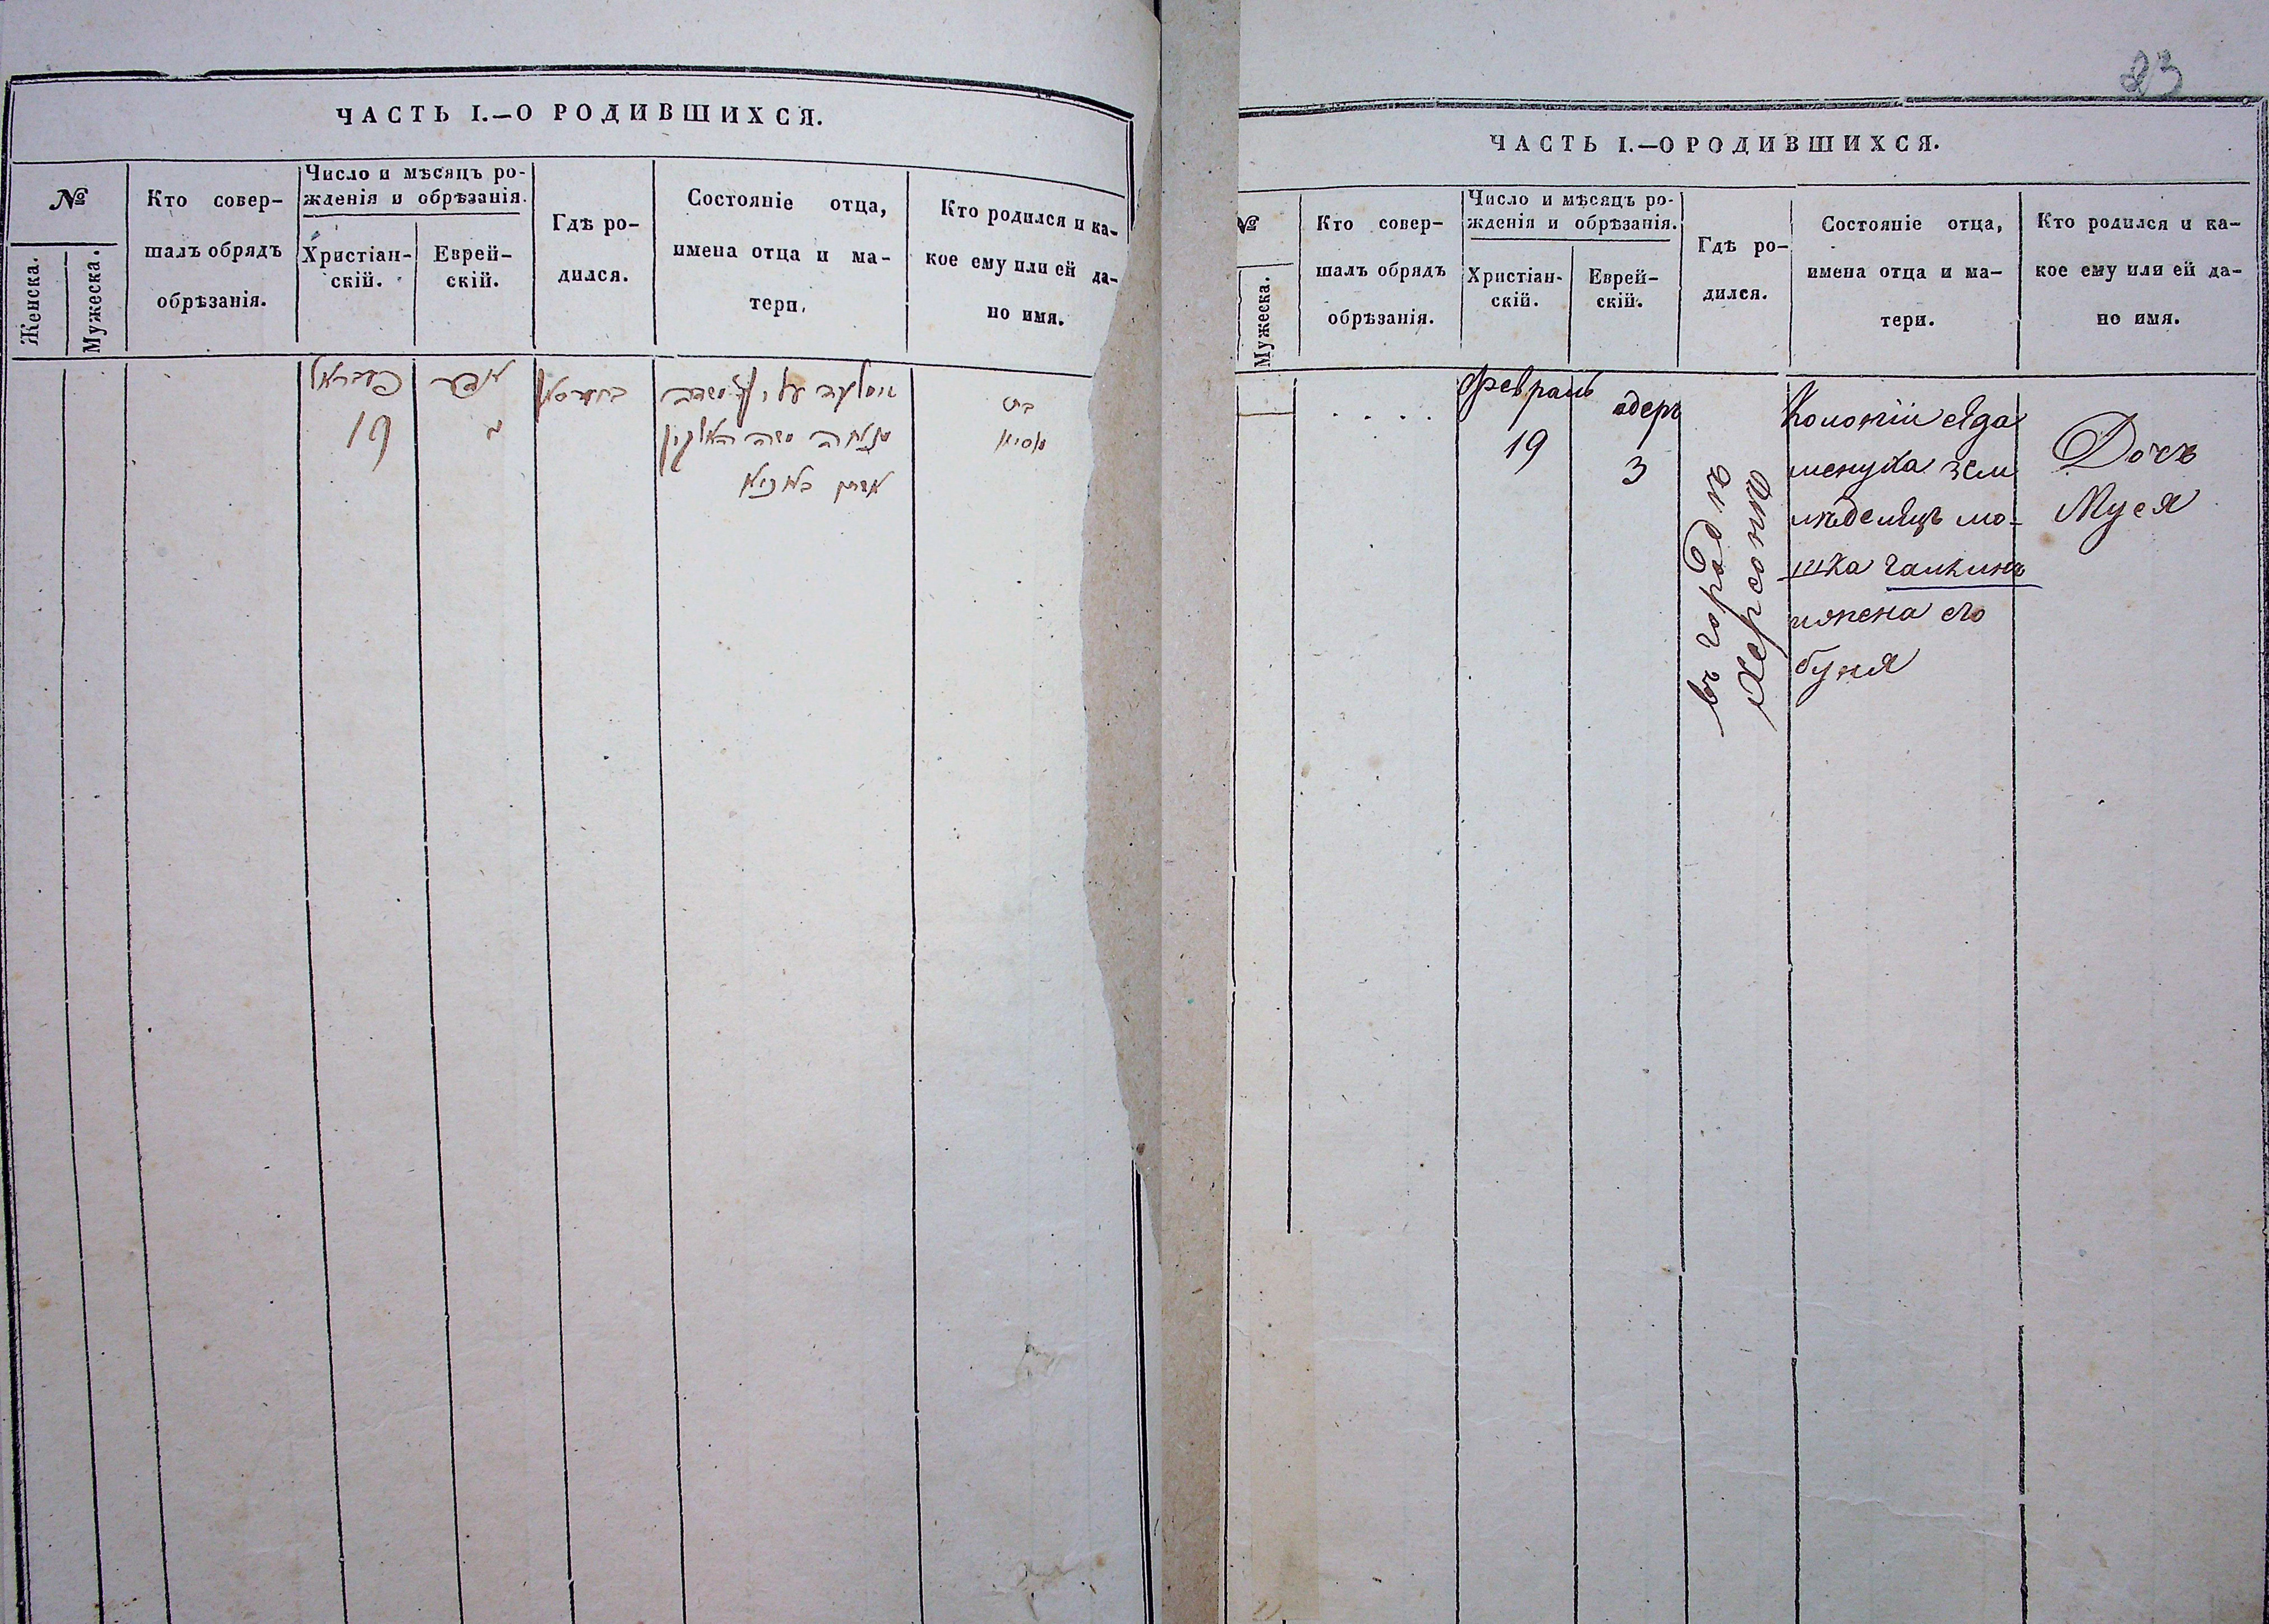 ЧАСТЬ I.—О РОДИВШИХСЯ.
№
Женска.
Мужеска.
Кто совер-
шалъ обрядъ
обрѣзанія.
Число и мѣсяцъ ро-
жденія и обрѣзанія.
Христіан-
скій.
Еврей-
скій.
Гдѣ ро-
дился.
Состояніе отца,
имена отца и ма-
тери.
Кто родился и ка-
кое ему или ей да-
но имя.
19
בת
23
ЧАСТЬ I.—О РОДИВШИХСЯ.
№
Мужеска.
Кто совер-
шалъ обрядъ
обрѣзанія.
Число и мѣсяцъ ро-
жденія и обрѣзанія.
Христіан-
скій.
Еврей-
скій.
Гдѣ ро-
дился.
Состояніе отца,
имена отца и ма-
тери.
Кто родился и ка-
кое ему или ей да-
но имя.
Февраль
19
адеръ
3
въ городѣ
Херсонѣ
Колоніи Яда
менука зем
лѣделецъ мо-
шка галкинъ
и жена его
буня
Дочь
Муся